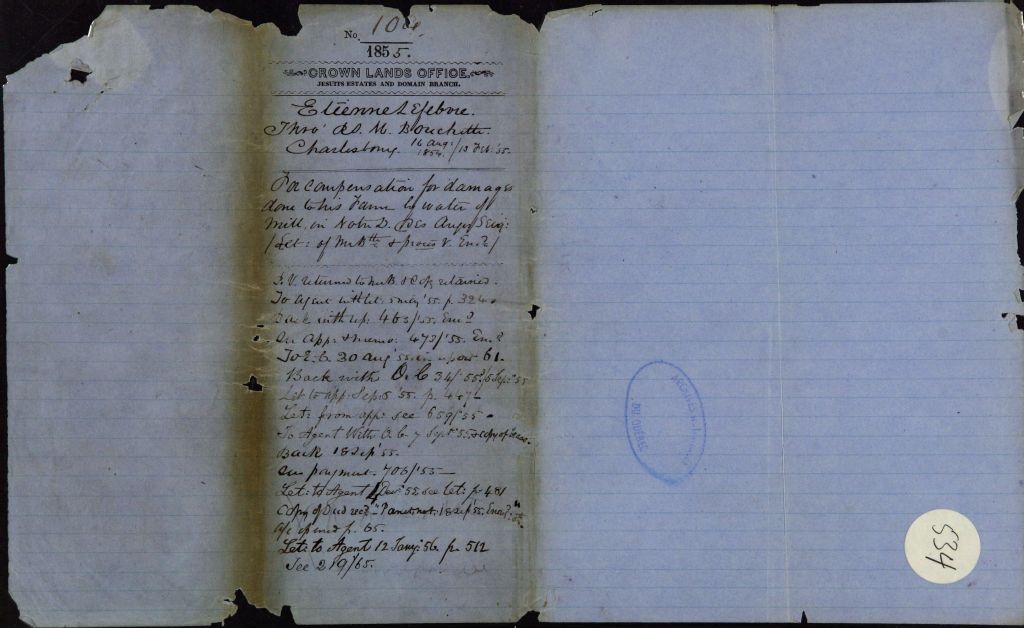 No. 104
1855.
CROWN LANDS OFFICE.
JESUITS ESTATES AND DOMAIN BRANCH.
Etienne Lefebvre.
Thro' M. Bouchette
Charlesbourg 16 Aug: 1854 / 13 Feb: '55.
For compensation for damages
done to his Farm by water of
Mill, in Notre D. des Anges Seig:
/ Let: of & Encl /
P.V. returned to Mr B. & Copy retained.
To Agent with let: 5 May '55 p. 324.
Back with rep: 463/'55. Encl
On App: & memo: 473/'55. Encl
To E.C. 30 Aug '55 61.
Back with O.C. 34/'55 / 5 Sep: 55
Let to app: Sep. 5 '55. p.
Let: from app: see 659/'55
To Agent With O.C. 7 Sept '55 & copy of
Back 18 Sep '55.
On payment. 706/'55
Let: to Agent 4 Dec: 55 see let: p. 481
Copy of Deed rec'd 18 Sep '55.
p. 65.
Let: to Agent 12 Jany: 56. p. 512
See 219/65.
ARCHIVES NATIONALES
DU QUÉBEC
534